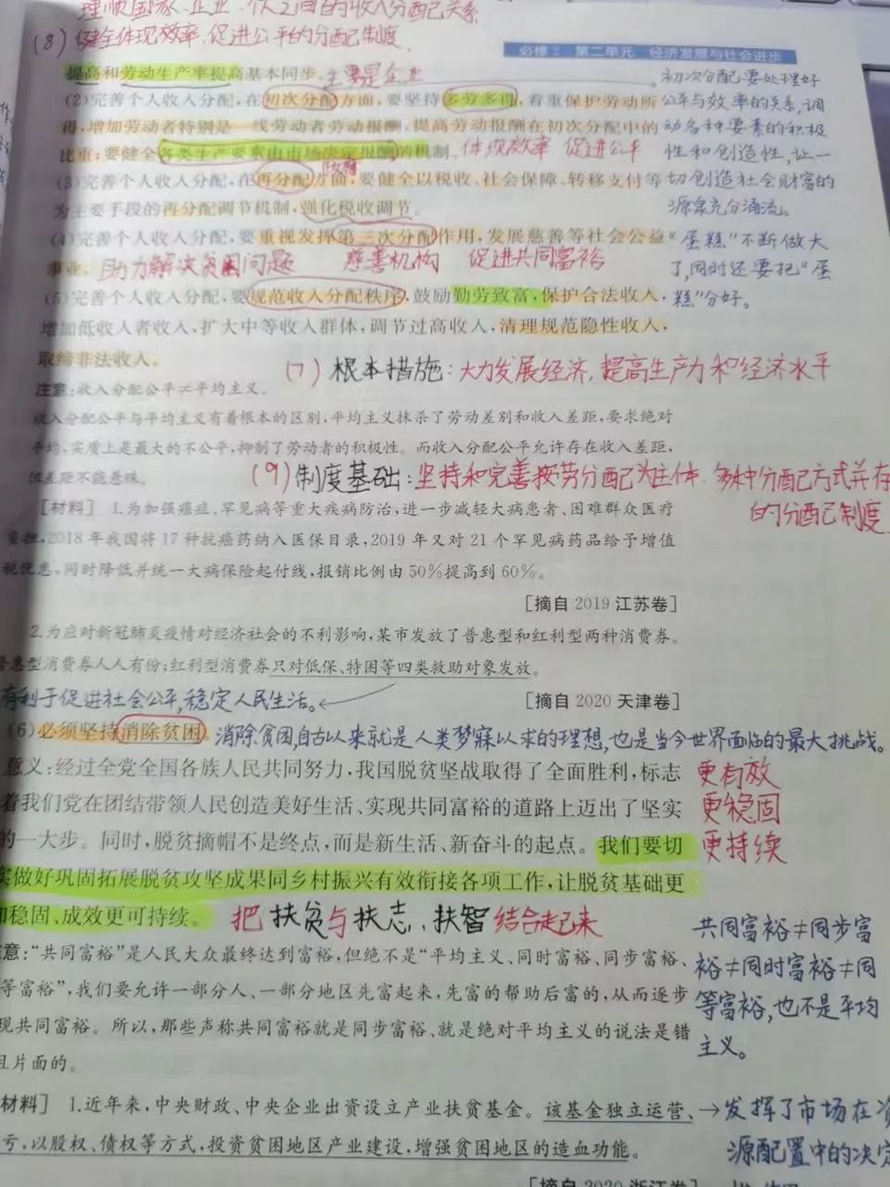 理顺国家、企业、个人之间的收入分配关系
(8)健全体现效率,促进公平的分配制度.
必修2 第二单元 经济发展与社会进步
提高和劳动生产率提高基本同步。主要是企业
(2)完善个人收入分配,在初次分配方面,要坚持多劳多得,着重保护劳动所
得,增加劳动者特别是一线劳动者劳动报酬,提高劳动报酬在初次分配中的
比重;要健全各类生产要素由市场决定报酬的机制。体现效率 促进公平
(3)完善个人收入分配,在再分配方面,要健全以税收、社会保障、转移支付等
为主要手段的再分配调节机制,强化税收调节。
(4)完善个人收入分配,要重视发挥第三次分配作用,发展慈善等社会公益
事业。助力解决贫困问题 慈善机构 促进共同富裕
(5)完善个人收入分配,要规范收入分配秩序,鼓励勤劳致富,保护合法收入,
增加低收入者收入,扩大中等收入群体,调节过高收入,清理规范隐性收入,
取缔非法收入。
初次分配要处理好
公平与效率的关系,调
动各种要素的积极
性和创造性,让一
切创造社会财富的
源泉充分涌流。
“蛋糕”不断做大
了,同时还要把“蛋
糕”分好。
(7)根本措施:大力发展经济,提高生产力和经济水平
注意:收入分配公平≠平均主义。
收入分配公平与平均主义有着根本的区别,平均主义抹杀了劳动差别和收入差距,要求绝对
平均,实质上是最大的不公平,抑制了劳动者的积极性。而收入分配公平允许存在收入差距,
但差距不能悬殊。
(9)制度基础:坚持和完善按劳分配为主体、多种分配方式并存
的分配制度
[材料] 1.为加强癌症、罕见病等重大疾病防治,进一步减轻大病患者、困难群众医疗
负担,2018年我国将17种抗癌药纳入医保目录,2019年又对21个罕见病药品给予增值
税优惠,同时降低并统一大病保险起付线,报销比例由50%提高到60%。
[摘自2019江苏卷]
2.为应对新冠肺炎疫情对经济社会的不利影响,某市发放了普惠型和红利型两种消费券。
普惠型消费券人人有份;红利型消费券只对低保、特困等四类救助对象发放。
[摘自2020天津卷]
有利于促进社会公平,稳定人民生活。←
(6)必须坚持消除贫困 消除贫困,自古以来就是人类梦寐以求的理想,也是当今世界面临的最大挑战。
意义:经过全党全国各族人民共同努力,我国脱贫攻坚战取得了全面胜利,标志
着我们党在团结带领人民创造美好生活、实现共同富裕的道路上迈出了坚实
的一大步。同时,脱贫摘帽不是终点,而是新生活、新奋斗的起点。我们要切
实做好巩固拓展脱贫攻坚成果同乡村振兴有效衔接各项工作,让脱贫基础更
加稳固、成效更可持续。把扶贫与扶志、扶智结合起来
更有效
更稳固
更持续
意:“共同富裕”是人民大众最终达到富裕,但绝不是“平均主义、同时富裕、同步富裕、
等富裕”,我们要允许一部分人、一部分地区先富起来,先富的帮助后富的,从而逐步
现共同富裕。所以,那些声称共同富裕就是同步富裕、就是绝对平均主义的说法是错
且片面的。
共同富裕≠同步富
裕≠同时富裕≠同
等富裕,也不是平均
主义。
材料] 1.近年来,中央财政、中央企业出资设立产业扶贫基金。该基金独立运营、
亏,以股权、债权等方式,投资贫困地区产业建设,增强贫困地区的造血功能。
→发挥了市场在资
源配置中的决定
[摘自2020浙江卷]